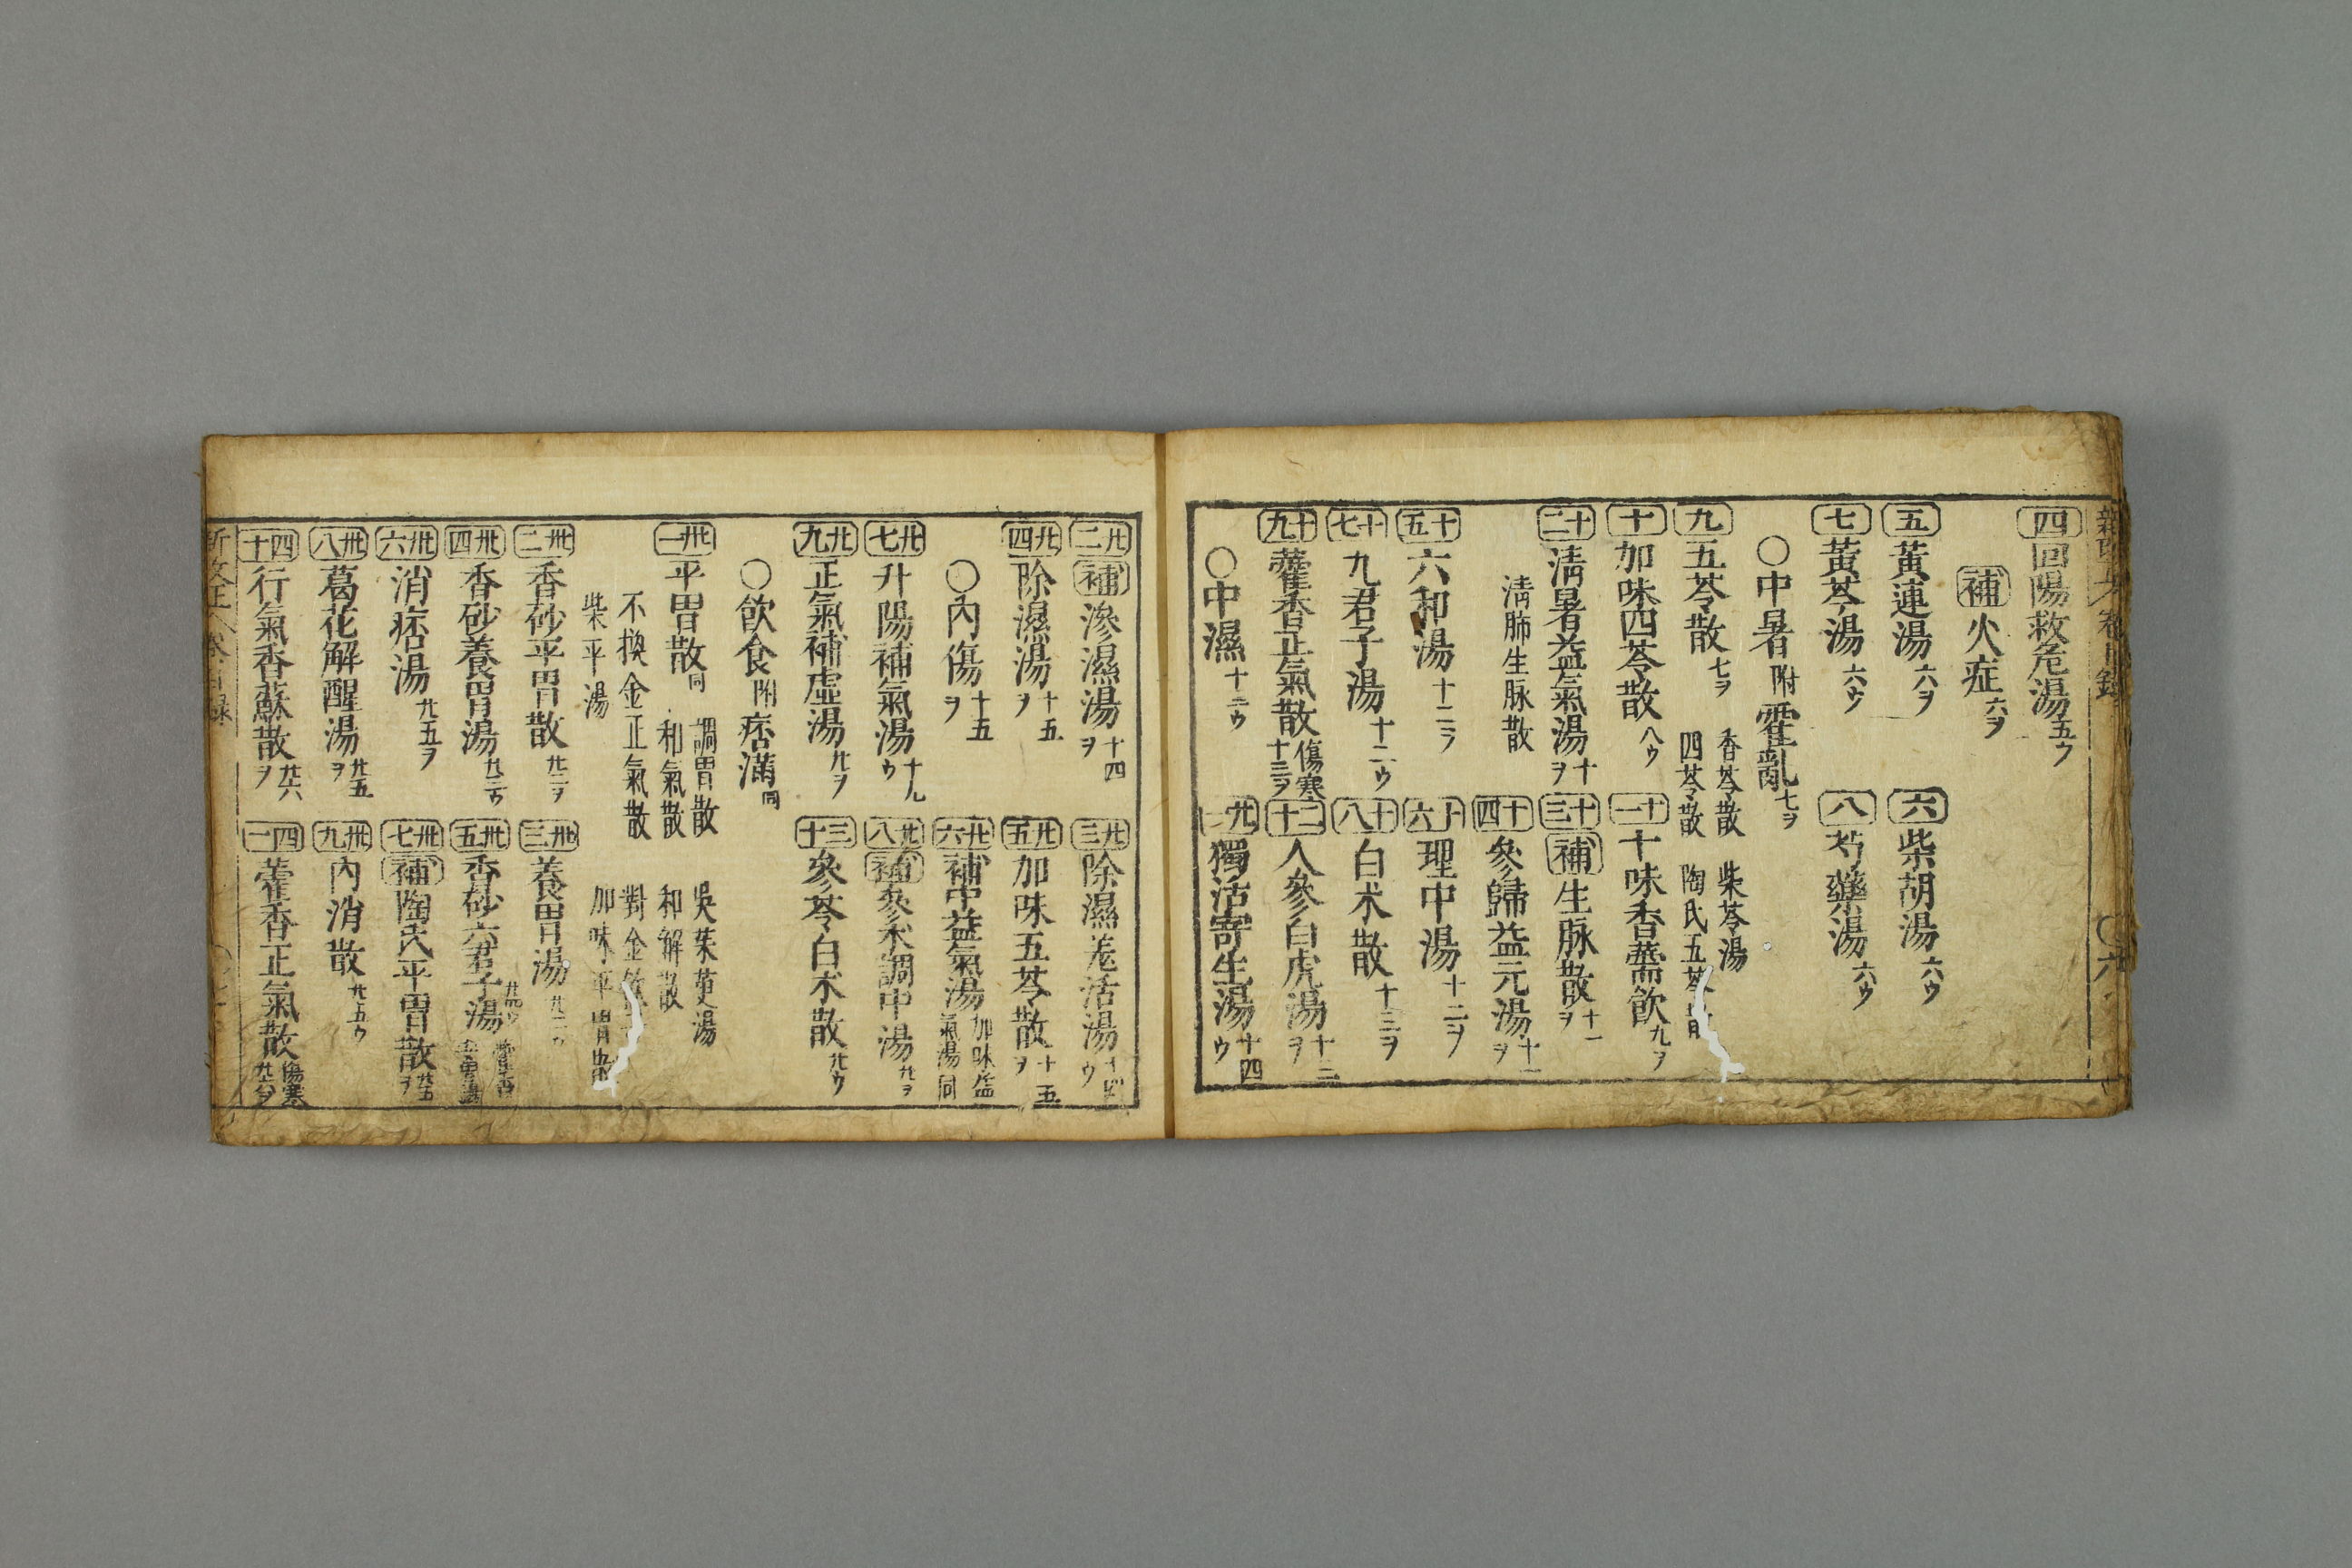 四 回陽救危湯 五ウ
補 火症 六ヲ
五 黃連湯 六ヲ
六 柴胡湯 六ウ
七 黃芩湯 六ウ
八 芍藥湯 六ウ
〇中暑 附 霍亂 七ヲ
九 五苓散 七ヲ
香苓散 柴苓湯
四苓散 陶氏五苓
十 加味四苓散 八ウ
十一 十味香薷飲 九ヲ
十二 淸暑益氣湯 十ヲ
十三 補 生脉散 十一ヲ
淸肺生脉散
十四 參歸益元湯 十一ヲ
十五 六和湯 十二ヲ
十六 理中湯 十二ヲ
十七 九君子湯 十二ウ
十八 白朮散 十三ヲ
十九 藿香正氣散 傷寒 十三ヲ
二十 人參白虎湯 十三ヲ
〇中濕 十三ウ
廿一 獨活寄生湯 十四ウ
廿二 補 滲濕湯 十四ヲ
廿三 除濕羗活湯 十四ウ
廿四 除濕湯 十五ヲ
廿五 加味五苓散 十五ヲ
〇內傷 十五ヲ
廿六 補中益氣湯 加味益氣湯 同
廿七 升陽補氣湯 十九ウ
廿八 補 參朮調中湯 廿ヲ
廿九 正氣補虛湯 廿ヲ
三十 參苓白朮散 廿ウ
〇飮食 附 痞滿 同
卅一 平胃散 同
調胃散 吳茱萸湯
和氣散 和解散
不換金正氣散 對金飮
柴平湯 加味平胃散
卅二 香砂平胃散 廿二ヲ
卅三 養胃湯
卅四 香砂養胃湯
卅五 香砂六君子湯
卅六 消痞湯 廿五ヲ
卅七 補 陶氏平胃散 廿五ヲ
卅八 葛花解醒湯 廿五ヲ
卅九 內消散 廿五ウ
四十 行氣香蘇散 廿六ヲ
四一 藿香正氣散 傷寒 廿六ヲ